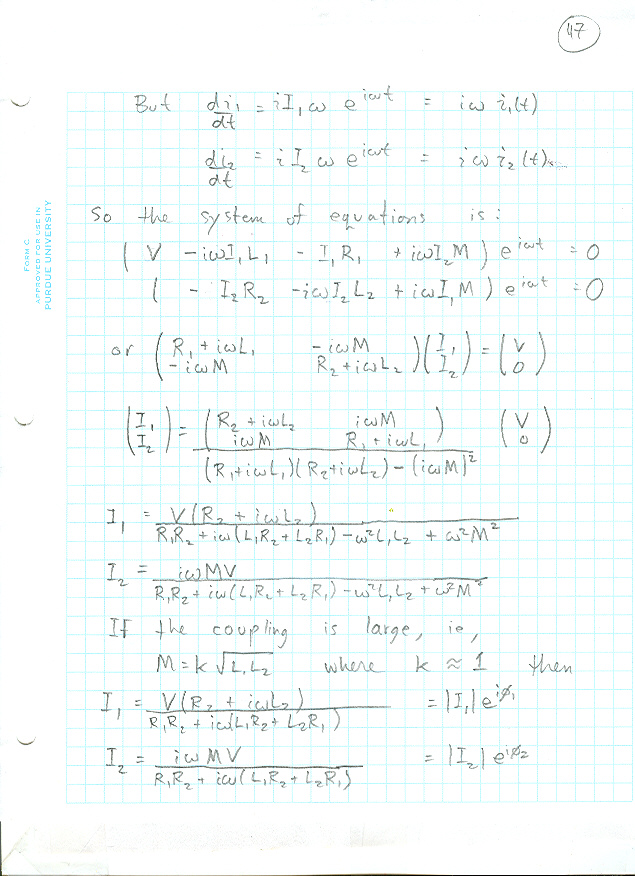 47
But di₁/dt = i I₁ ω e^{iωt} = iω i₁(t)
di₂/dt = i I₂ ω e^{iωt} = iω i₂(t).
FORM C
APPROVED FOR USE IN
PURDUE UNIVERSITY
So the system of equations is:
( V - iωI₁L₁ - I₁R₁ + iωI₂M ) e^{iωt} = 0
( - I₂R₂ - iωI₂L₂ + iωI₁M ) e^{iωt} = 0
or ( R₁ + iωL₁ -iωM ; -iωM R₂ + iωL₂ ) ( I₁ ; I₂ ) = ( V ; 0 )
( I₁ ; I₂ ) = ( R₂ + iωL₂ iωM ; iωM R₁ + iωL₁ ) / (R₁+iωL₁)(R₂+iωL₂) - (iωM)² ( V ; 0 )
I₁ = V(R₂ + iωL₂) / R₁R₂ + iω(L₁R₂ + L₂R₁) - ω²L₁L₂ + ω²M²
I₂ = iωMV / R₁R₂ + iω(L₁R₂ + L₂R₁) - ω²L₁L₂ + ω²M²
If the coupling is large, ie,
M = k √L₁L₂ where k ≈ 1 then
I₁ = V(R₂ + iωL₂) / R₁R₂ + iω(L₁R₂ + L₂R₁) = |I₁| e^{iφ₁}
I₂ = iωMV / R₁R₂ + iω(L₁R₂ + L₂R₁) = |I₂| e^{iφ₂}